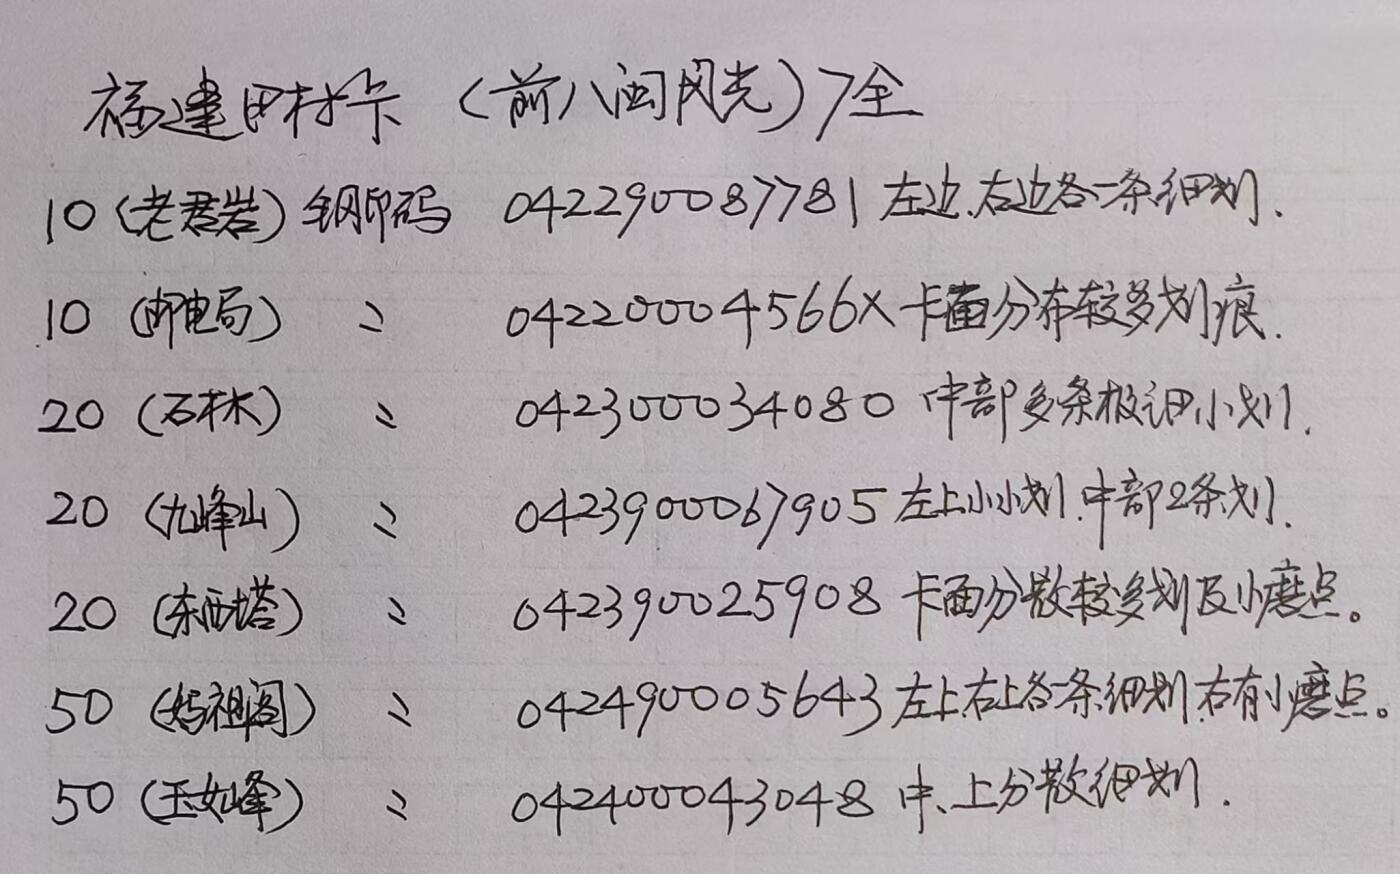 福建田村卡（前八闽风光）7全
10（老君岩）钢印码 042290087781 左边、右边各一条细划.
10（邮电局） 〃 042200004566X 卡面分布较多划痕.
20（石林） 〃 0423000034080 中部多条极细小划.
20（九峰山） 〃 0423900067905 左上小小划.中部2条划.
20（东西塔） 〃 0423900025908 卡面分散较多划及小磨点。
50（妈祖阁） 〃 0424900005643 左上右上各一条细划.右有小磨点。
50（玉女峰） 〃 0424000043048 中、上分散细划.